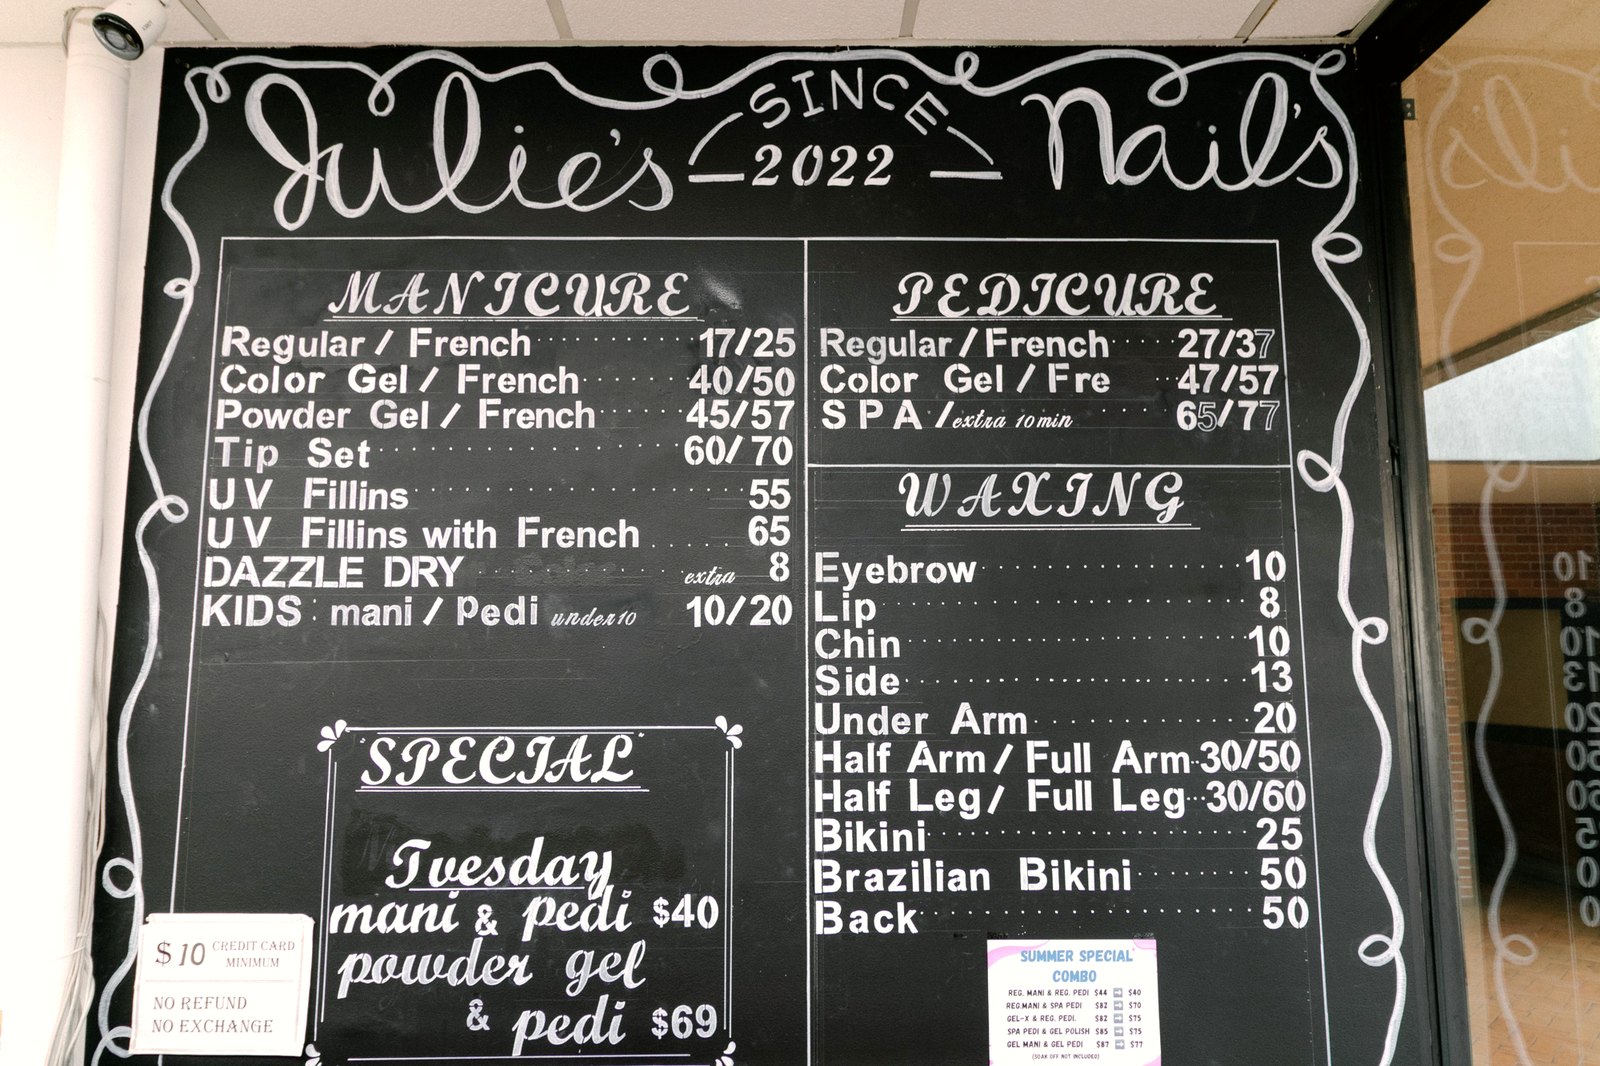 Julie's SINCE 2022 Nail's
MANICURE
Regular / French 17/25
Color Gel / French 40/50
Powder Gel / French 45/57
Tip Set 60/70
UV Fillins 55
UV Fillins with French 65
DAZZLE DRY extra 8
KIDS mani / Pedi under 10 10/20
"SPECIAL"
Tuesday
mani & pedi $40
powder gel
& pedi $69
$10 CREDIT CARD
MINIMUM
NO REFUND
NO EXCHANGE
PEDICURE
Regular / French 27/37
Color Gel / Fre 47/57
SPA / extra 10 min 65/77
WAXING
Eyebrow 10
Lip 8
Chin 10
Side 13
Under Arm 20
Half Arm / Full Arm 30/50
Half Leg / Full Leg 30/60
Bikini 25
Brazilian Bikini 50
Back 50
SUMMER SPECIAL
COMBO
REG. MANI & REG. PEDI $44 ➡ $40
REG.MANI & SPA PEDI $82 ➡ $70
GEL-X & REG. PEDI. $82 ➡ $75
SPA PEDI & GEL POLISH $85 ➡ $75
GEL MANI & GEL PEDI $87 ➡ $77
(SOAK OFF NOT INCLUDED)